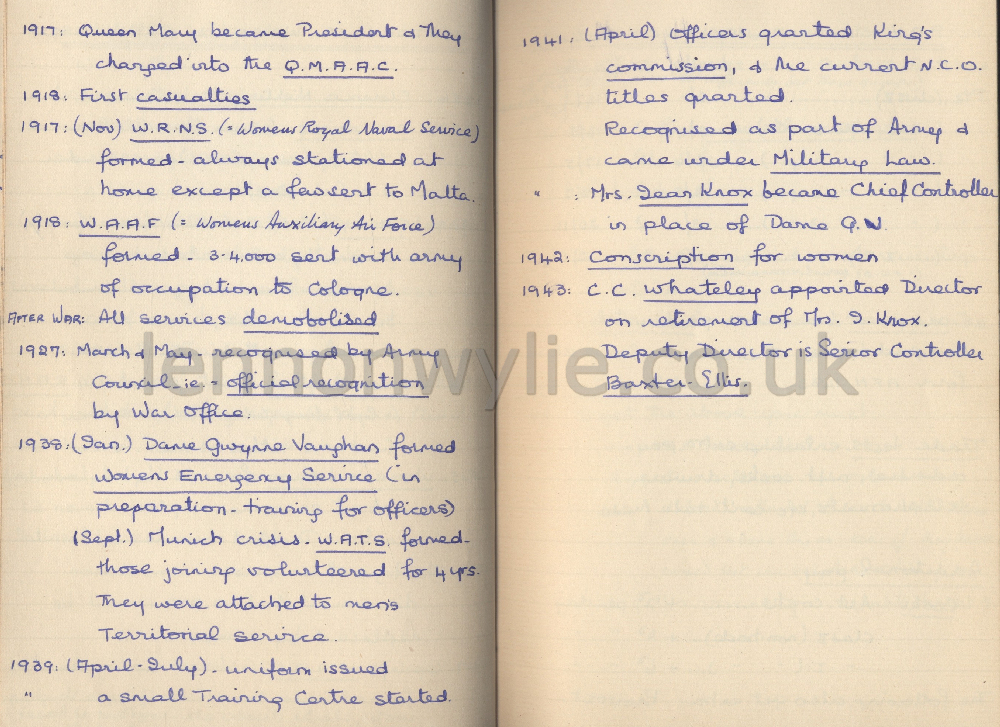 1917: Queen Mary became President & they
changed into the Q.M.A.A.C.
1918: First casualties
1917: (Nov) W.R.N.S. (= Womens Royal Naval Service)
formed - always stationed at
home except a few sent to Malta.
1918: W.A.A.F (= Womens Auxiliary Air Force)
formed - 3-4,000 sent with army
of occupation to Cologne.
AFTER WAR: All services demobolised
1927: March & May - recognised by Army
Council - ie. - official recognition
by War Office.
1938: (Jan.) Dame Gwynne Vaughan formed
Womens Emergency Service (in
preparation - training for officers)
(Sept.) Munich crisis - W.A.T.S. formed -
those joining volunteered for 4 yrs.
They were attached to men's
Territorial service.
1939: (April - July) - uniform issued
" a small Training Centre started.
1941: (April) Officers granted King's
commission, & the current N.C.O.
titles granted.
Recognised as part of Army &
came under Military Law.
" : Mrs. Jean Knox became Chief Controller
in place of Dame G.V.
1942: Conscription for women
1943: C.C. Whateley appointed Director
on retirement of Mrs. J. Knox.
Deputy Director is Senior Controller
Baxter-Ellis.
lennonwylie.co.uk